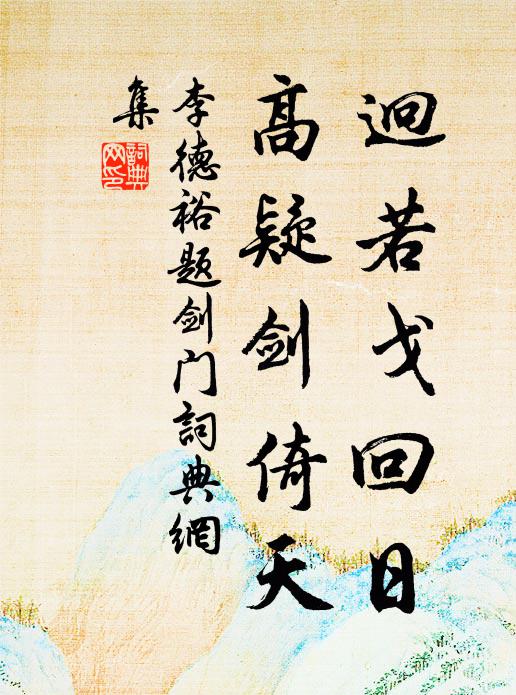 迥若戈回日
高疑剑倚天
李德裕题剑门詞典網
集
詞典
网印